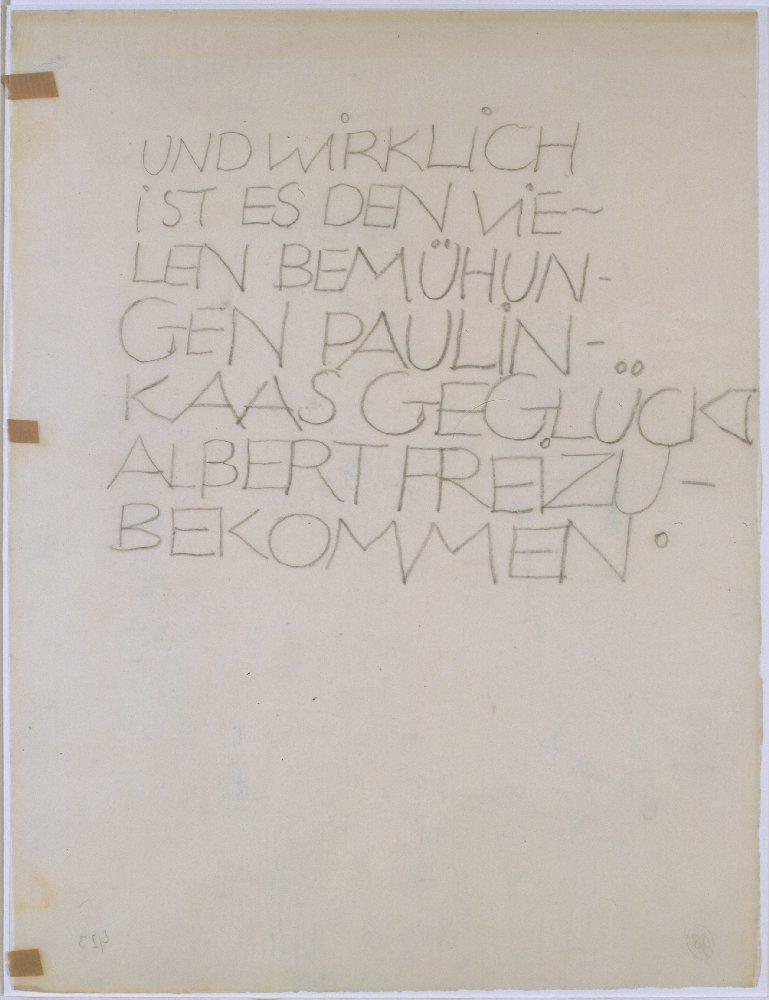 UND WiRKLiCH
iST ES DEN ViE~
LEN BEMÜHUN-
GEN PAULiN-
KAAS GEGLÜCKT
ALBERT FREiZU-
BEKOMMEN.
423